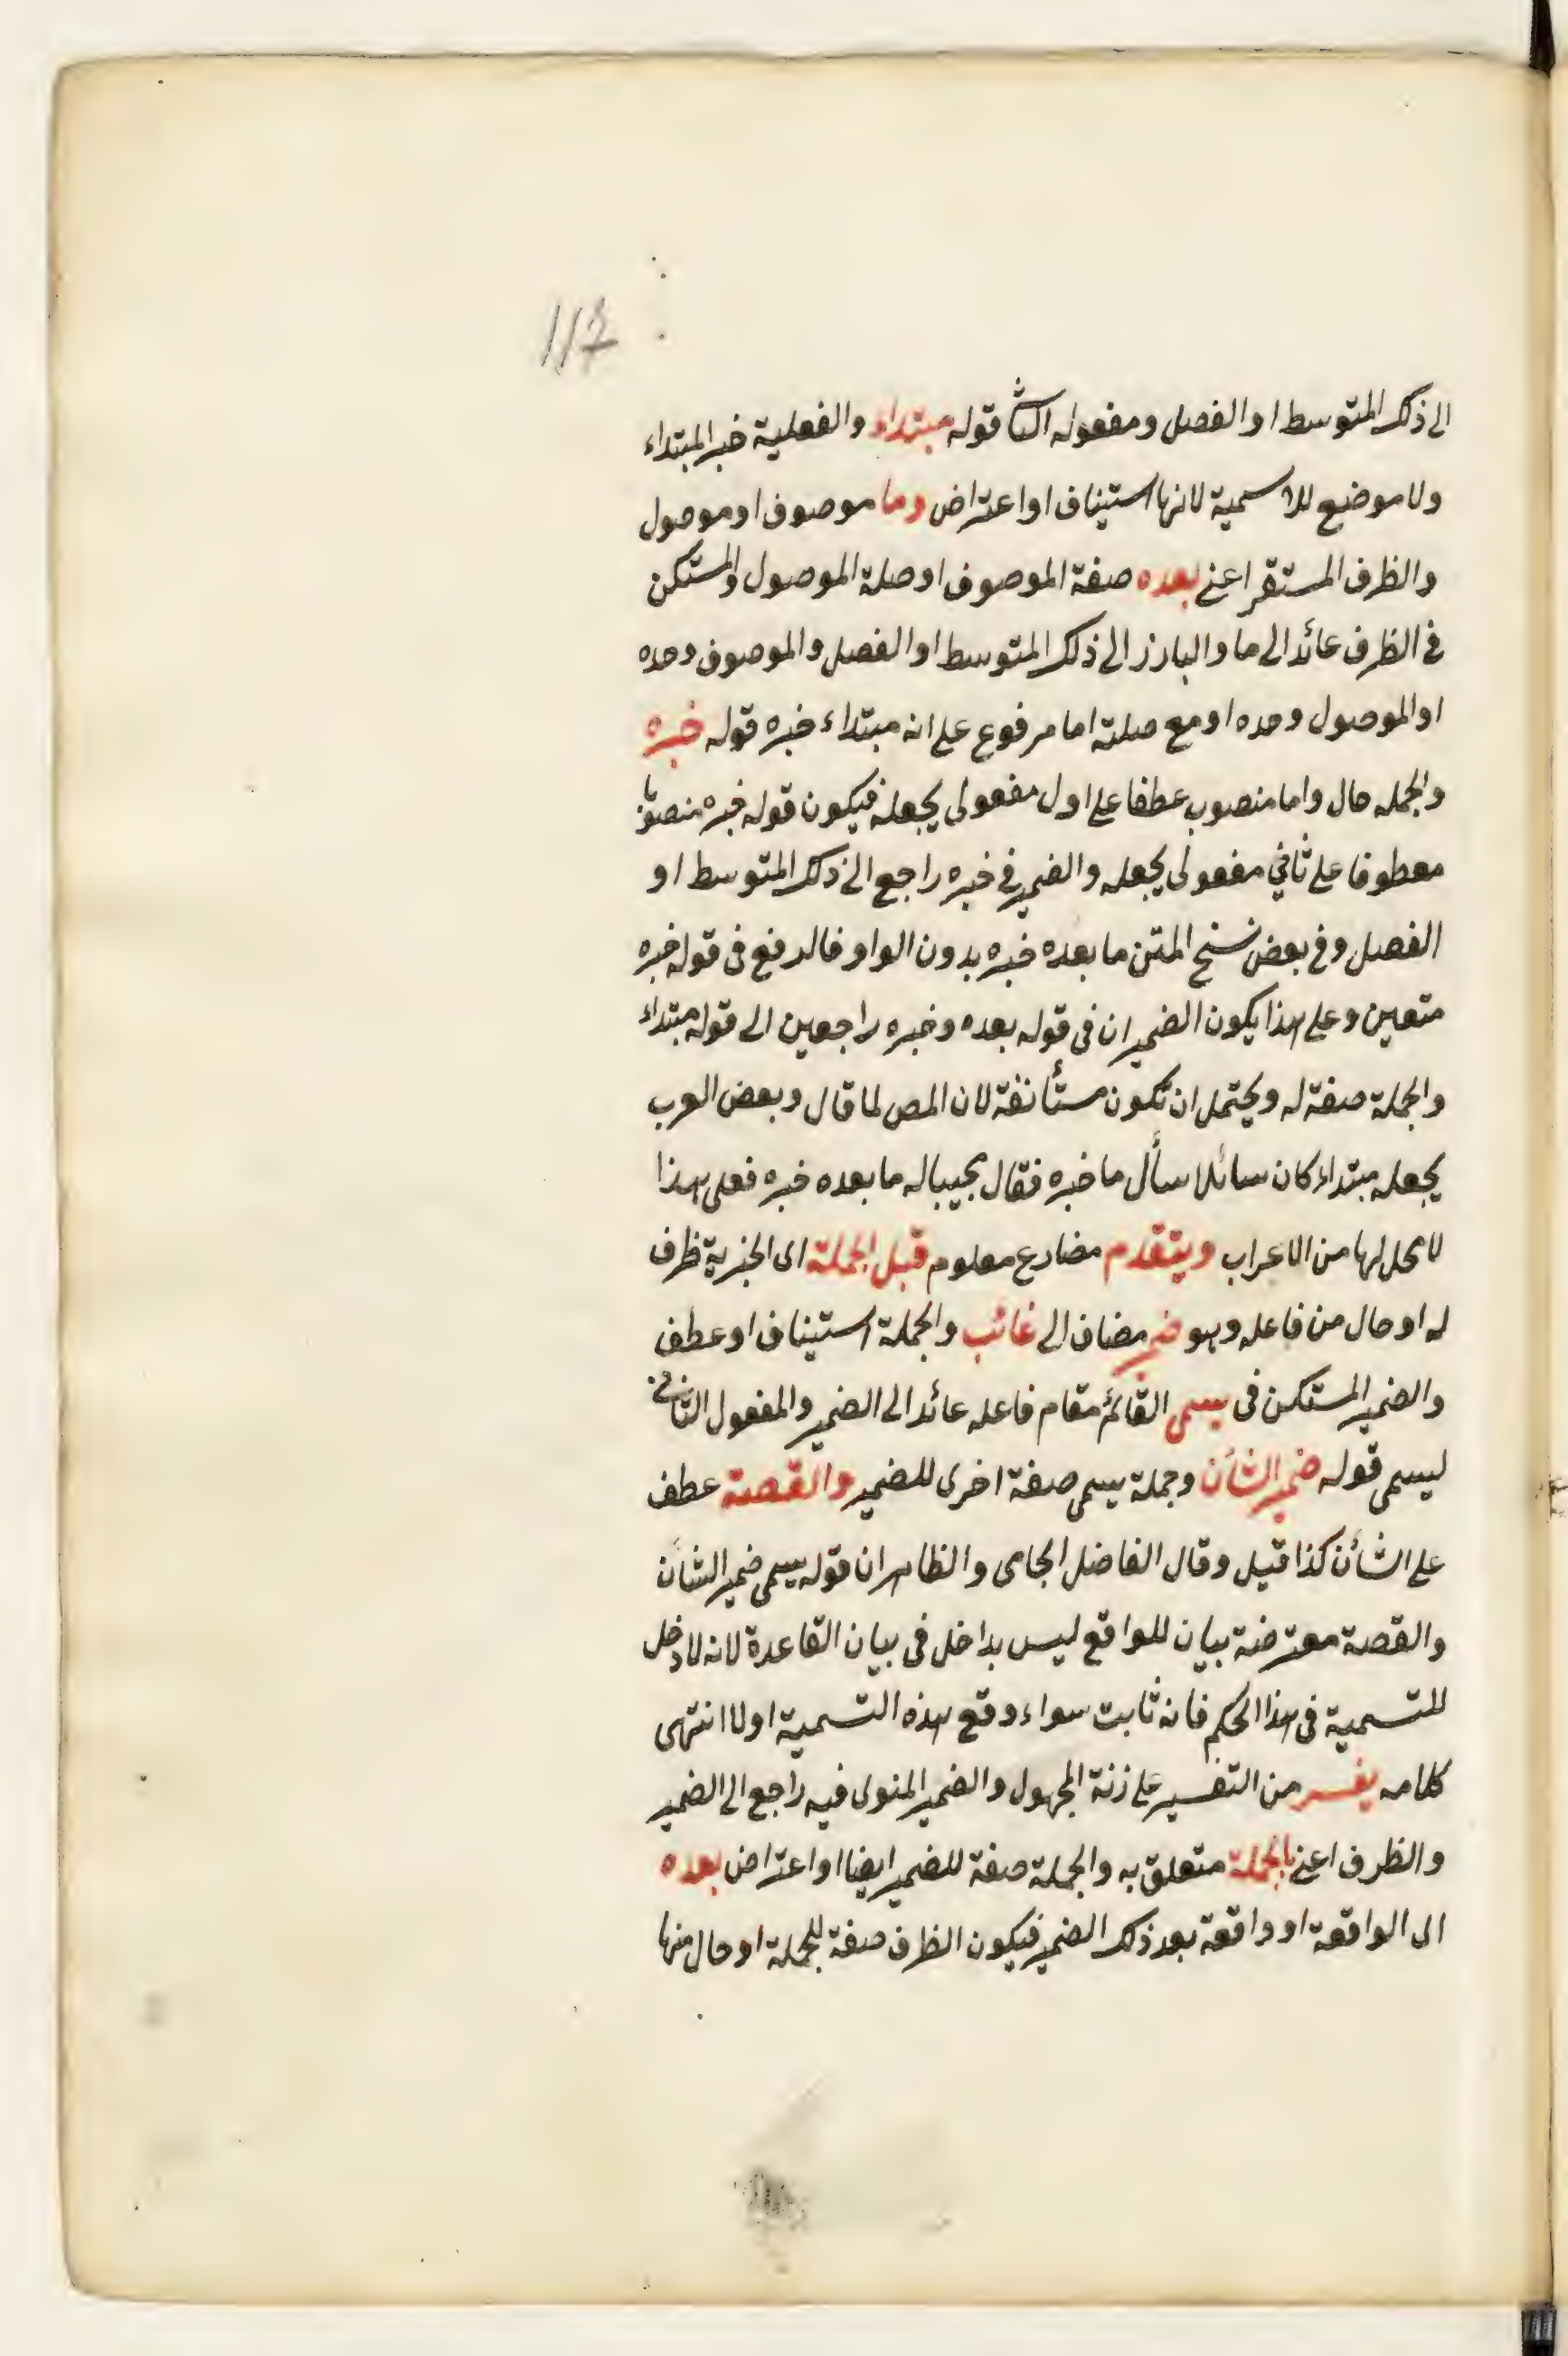 الى ذلك المتوسط او الفصل ومفعوله الثا قوله مبتداء والفعلية خبر المبتداء
ولا موضع للاسمية لانها استيناف او اعتراض وما موصوف او موصول
والظرف المستقر اعنى بعده صفة الموصوف او صلة الموصول والمستكن
فى الظرف عائد الى ما والبارز الى ذلك المتوسط او الفصل والموصوف وحده
او الموصول وحده او مع صلته اما مرفوع على انه مبتداء خبره قوله خبره
والجمله حال واما منصوب عطفا على اول مفعولى يجعله فيكون قوله خبره منصوبا
معطوفا على ثانى مفعولى يجعله والضمير فى خبره راجع الى ذلك المتوسط او
الفصل وفى بعض نسخ المتن ما بعده خبره بدون الواو فالرفع فى قوله خبره
متعين وعلى هذا يكون الضميران فى قوله بعده وخبره راجعين الى قوله مبتداء
والجملة صفة له ويحتمل ان تكون مستأنفة لان المص لما قال وبعض العرب
يجعله مبتداء كان سائلا سأل ما خبره فقال مجيبا له ما بعده خبره فعلى هذا
لا محل لها من الاعراب ويتقدم مضارع معلوم قبل الجملة اى الخبرية ظرف
له او حال من فاعله وهو ضمير مضاف الى غائب والجملة استيناف او عطف
والضمير المستكن فى يسمى القائم مقام فاعله عائد الى الضمير والمفعول الثانى
ليسمى قوله ضمير الشأن وجملة يسمى صفة اخرى للضمير والقصة عطف
على الشأن كذا قيل وقال الفاضل الجامى والظاهر ان قوله يسمى ضمير الشأن
والقصة معترضة بيان للواقع ليس بداخل فى بيان القاعدة لانه لا دخل
للتسمية فى هذا الحكم فانه ثابت سواء وقع هذه التسمية اولا انتهى
كلامه يفسر من التفسير على زنة المجهول والضمير المنوى فيه راجع الى الضمير
والظرف اعنى بالجملة متعلق به والجملة صفة للضمير ايضا او اعتراض بعده
اى الواقعة او واقعة بعد ذلك الضمير فيكون الظرف صفة للجملة او حال منها